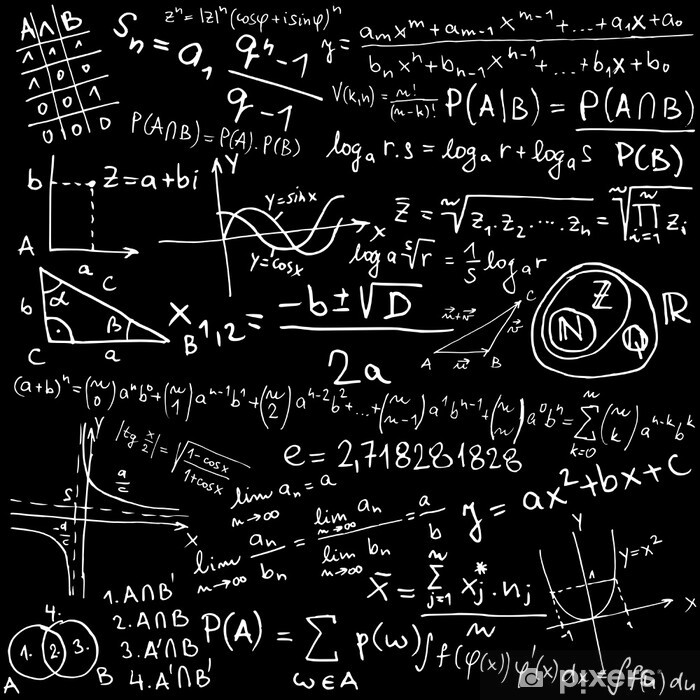 A ∧ B
1 1 1
1 0 0
0 0 1
0 0 0
Sₙ = a₁ (qⁿ-1)/(q-1)
zⁿ = |z|ⁿ(cosφ+isinφ)ⁿ
y = (aₘxᵐ+aₘ₋₁xᵐ⁻¹+...+a₁x+a₀)/(bₙxⁿ+bₙ₋₁xⁿ⁻¹+...+b₁x+b₀)
V(k,n) = n!/(n-k)!
P(A|B) = P(A∩B)/P(B)
P(A∩B)=P(A).P(B)
logₐ r.s = logₐ r + logₐ s
b
Z=a+bi
a
Y
y=sinx
y=cosx
X
Z̄ = ⁿ√(z₁.z₂.....zₙ) = ⁿ√(∏ᵢ₌₁ⁿ zᵢ)
logₐ ˢ√r = 1/s logₐ r
A
b
c
α
β
C
a
B
X₁,₂ = (-b±√D)/2a
A
B
C
u⃗
v⃗
u⃗+v⃗
N
Z
Q
R
(a+b)ⁿ=(n 0)aⁿb⁰+(n 1)aⁿ⁻¹b¹+(n 2)aⁿ⁻²b²+...+(n n-1)a¹bⁿ⁻¹+(n n)a⁰bⁿ=∑ₖ₌₀ⁿ(n k)aⁿ⁻ᵏbᵏ
Y
a/c
S
-d/c
X
|tg x/2|=√((1-cosx)/(1+cosx))
e = 2,718281828
lim n→∞ aₙ = a
lim n→∞ aₙ/bₙ = (lim n→∞ aₙ)/(lim n→∞ bₙ) = a/b
y = ax²+bx+c
X̄ = (∑ⱼ₌₁ⁿ xⱼ*.nⱼ)/n
Y
y=x²
1
-1
1
X
4.
1.
2.
3.
A
B
1. A∩B'
2. A∩B
3. A'∩B
4. A'∩B'
P(A) = ∑ω∈A p(ω)
∫f(φ(x))φ'(x)dx = ∫f(u)du
pixers